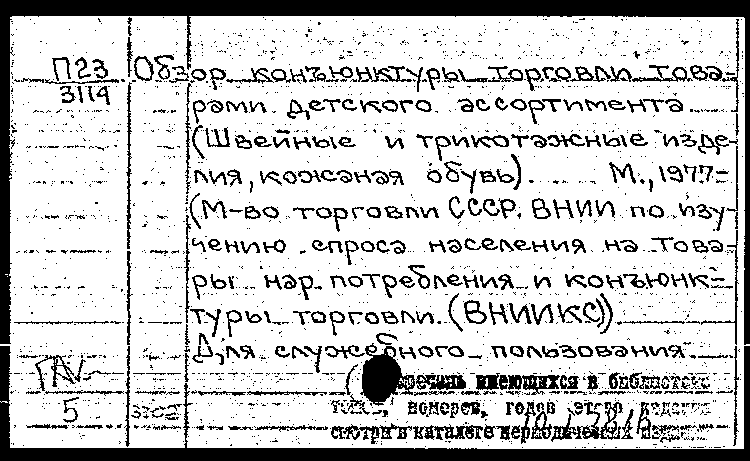 П23 Обзор конъюнктуры торговли това-
3114 рами детского ассортимента
(Швейные и трикотажные изде-
лия, кожаная обувь). М., 1977-
(М-во торговли СССР. ВНИИ по изу-
чению спроса населения на това-
ры нар. потребления и конъюнк-
туры торговли. (ВНИИКС)).
Для служебного пользования.
имеющихся в библиотеке
5 номеров, годов этого издания
смотри в каталоге периодических